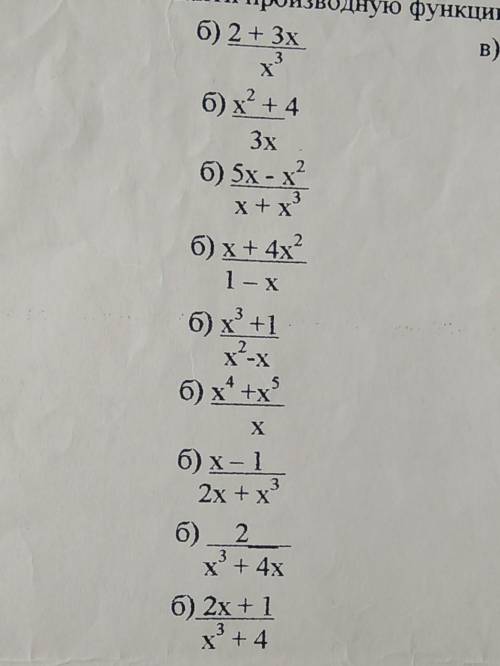 производную функции
б) 2 + 3x
x³
в)
б) x² + 4
3x
б) 5x - x²
x + x³
б) x + 4x²
1 – x
б) x³ +1
x²-x
б) x⁴ +x⁵
x
б) x – 1
2x + x³
б) 2
x³ + 4x
б) 2x + 1
x³ + 4